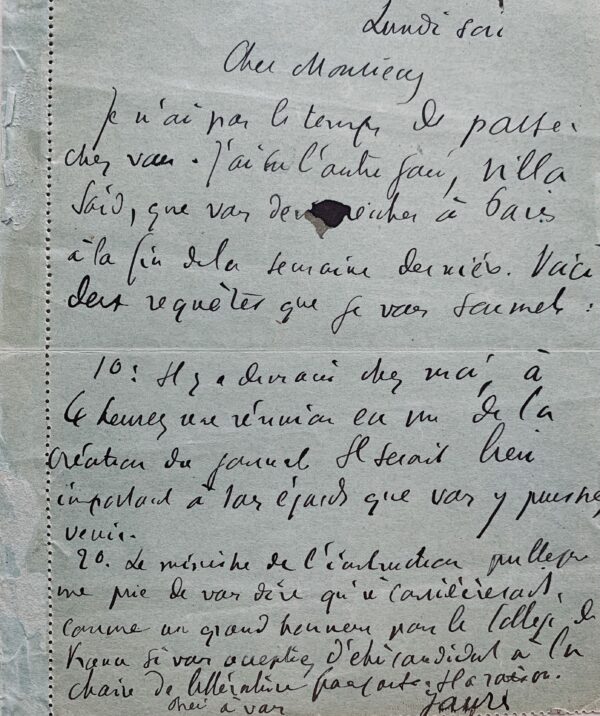 Lundi soir
Cher Monsieur
Je n'ai pas le temps de passer
chez vous. J'ai su l'autre jour, villa
Saïd, que vous à Paris
à la fin de la semaine dernière. Voici
deux requêtes que je vous soumets :
1o : Il y a demain chez moi, à
4 heures une réunion en vue de la
création du journal Il serait bien
important à tous égards que vous y puissiez
venir.
2o. Le ministre de l'instruction publique
me prie de vous dire qu'il considèrerait,
comme un grand honneur pour le Collège de
France si vous acceptiez d'être candidat à la
chaire de littérature française. Il a raison.
à vous
Jaurès